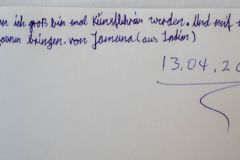 n ich groß bin mal Künstlerin werden. Und mit m
bringen. von Jamuna (aus Indien)
13.04.20